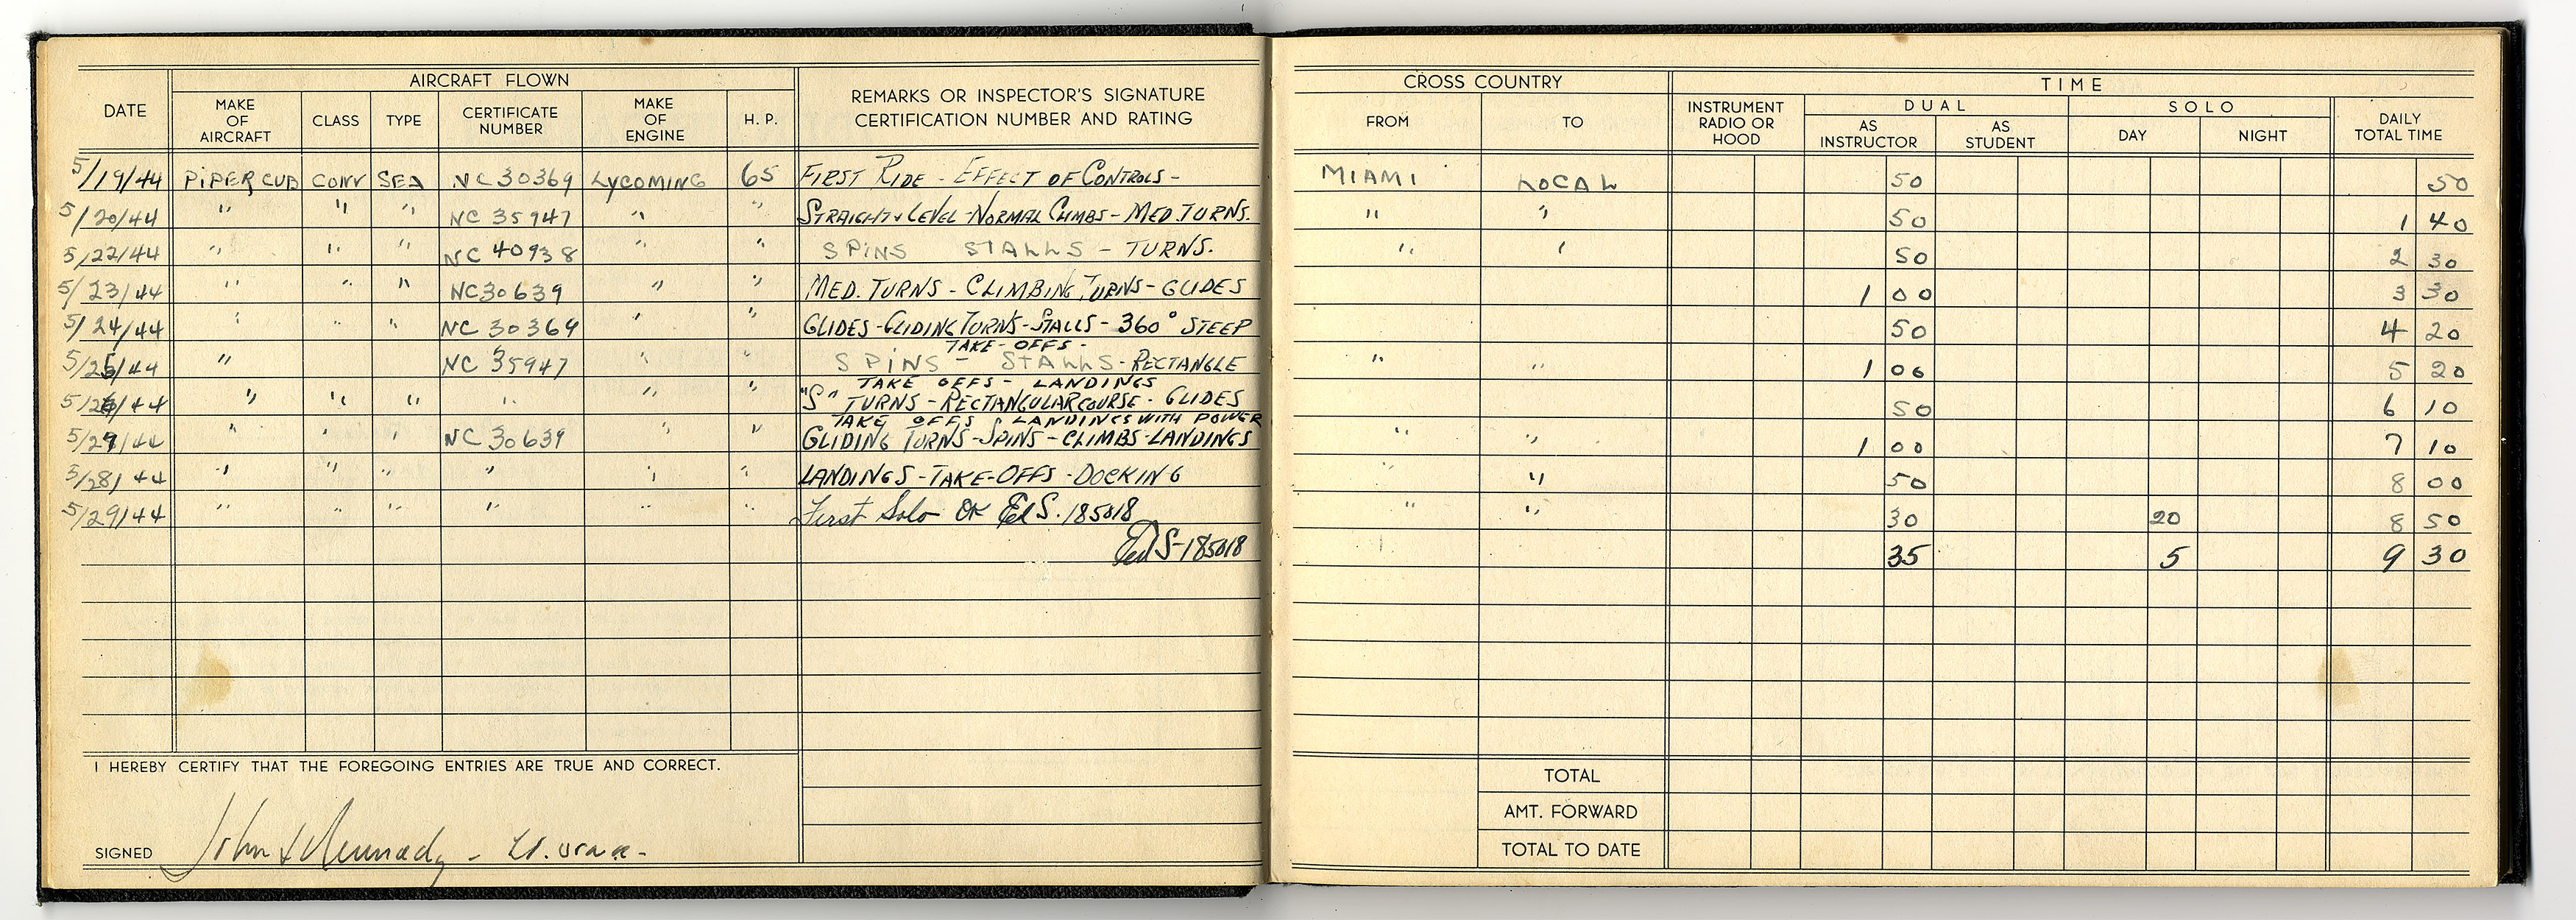 AIRCRAFT FLOWN
DATE MAKE OF AIRCRAFT CLASS TYPE CERTIFICATE NUMBER MAKE OF ENGINE H. P. REMARKS OR INSPECTOR'S SIGNATURE CERTIFICATION NUMBER AND RATING
5/19/44 PIPER CUB CONV SEA NC 30369 LYCOMING 65 FIRST RIDE - EFFECT OF CONTROLS -
5/20/44 " " " NC 35947 " " STRAIGHT & LEVEL - NORMAL CLIMBS - MED. TURNS.
5/22/44 " " " NC 40938 " " SPINS STALLS - TURNS.
5/23/44 " " " NC 30639 " " MED. TURNS - CLIMBING TURNS - GLIDES
5/24/44 " " " NC 30369 " " GLIDES - GLIDING TURNS - STALLS - 360° STEEP
TAKE-OFFS -
5/25/44 " NC 35947 " " SPINS - STALLS - RECTANGLE
TAKE OFFS - LANDINGS
5/26/44 " " " " " " "S" TURNS - RECTANGULAR COURSE - GLIDES
TAKE OFFS LANDINGS WITH POWER
5/27/44 " " " NC 30639 " " GLIDING TURNS - SPINS - CLIMBS - LANDINGS
5/28/44 " " " " " " LANDINGS - TAKE-OFFS - DOCKING
5/29/44 " " " " " " First Solo OK Ed S. 185018
Ed S-185018
I HEREBY CERTIFY THAT THE FOREGOING ENTRIES ARE TRUE AND CORRECT.
SIGNED John F Kennedy - Lt.
CROSS COUNTRY TIME
FROM TO INSTRUMENT RADIO OR HOOD DUAL SOLO DAILY TOTAL TIME
AS INSTRUCTOR AS STUDENT DAY NIGHT
MIAMI LOCAL 50 50
" " 50 1 40
" " 50 2 30
1 00 3 30
50 4 20
" " 1 00 5 20
50 6 10
" " 1 00 7 10
" " 50 8 00
" " 30 20 8 50
35 5 9 30
TOTAL
AMT. FORWARD
TOTAL TO DATE